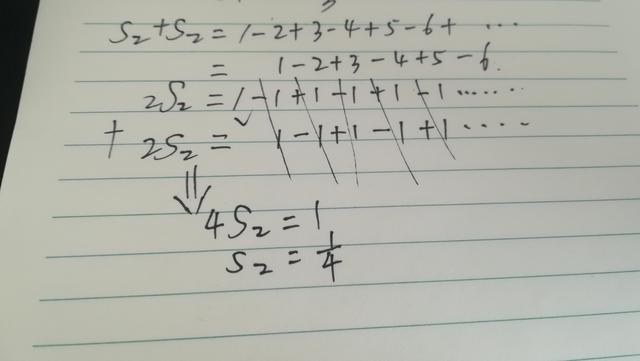 S₂+S₂ = 1-2+3-4+5-6+ ...
= 1-2+3-4+5-6.
2S₂ = 1-1+1-1+1-1......
+ 2S₂ = 1-1+1-1+1....
⇓
4S₂ = 1
S₂ = 1/4